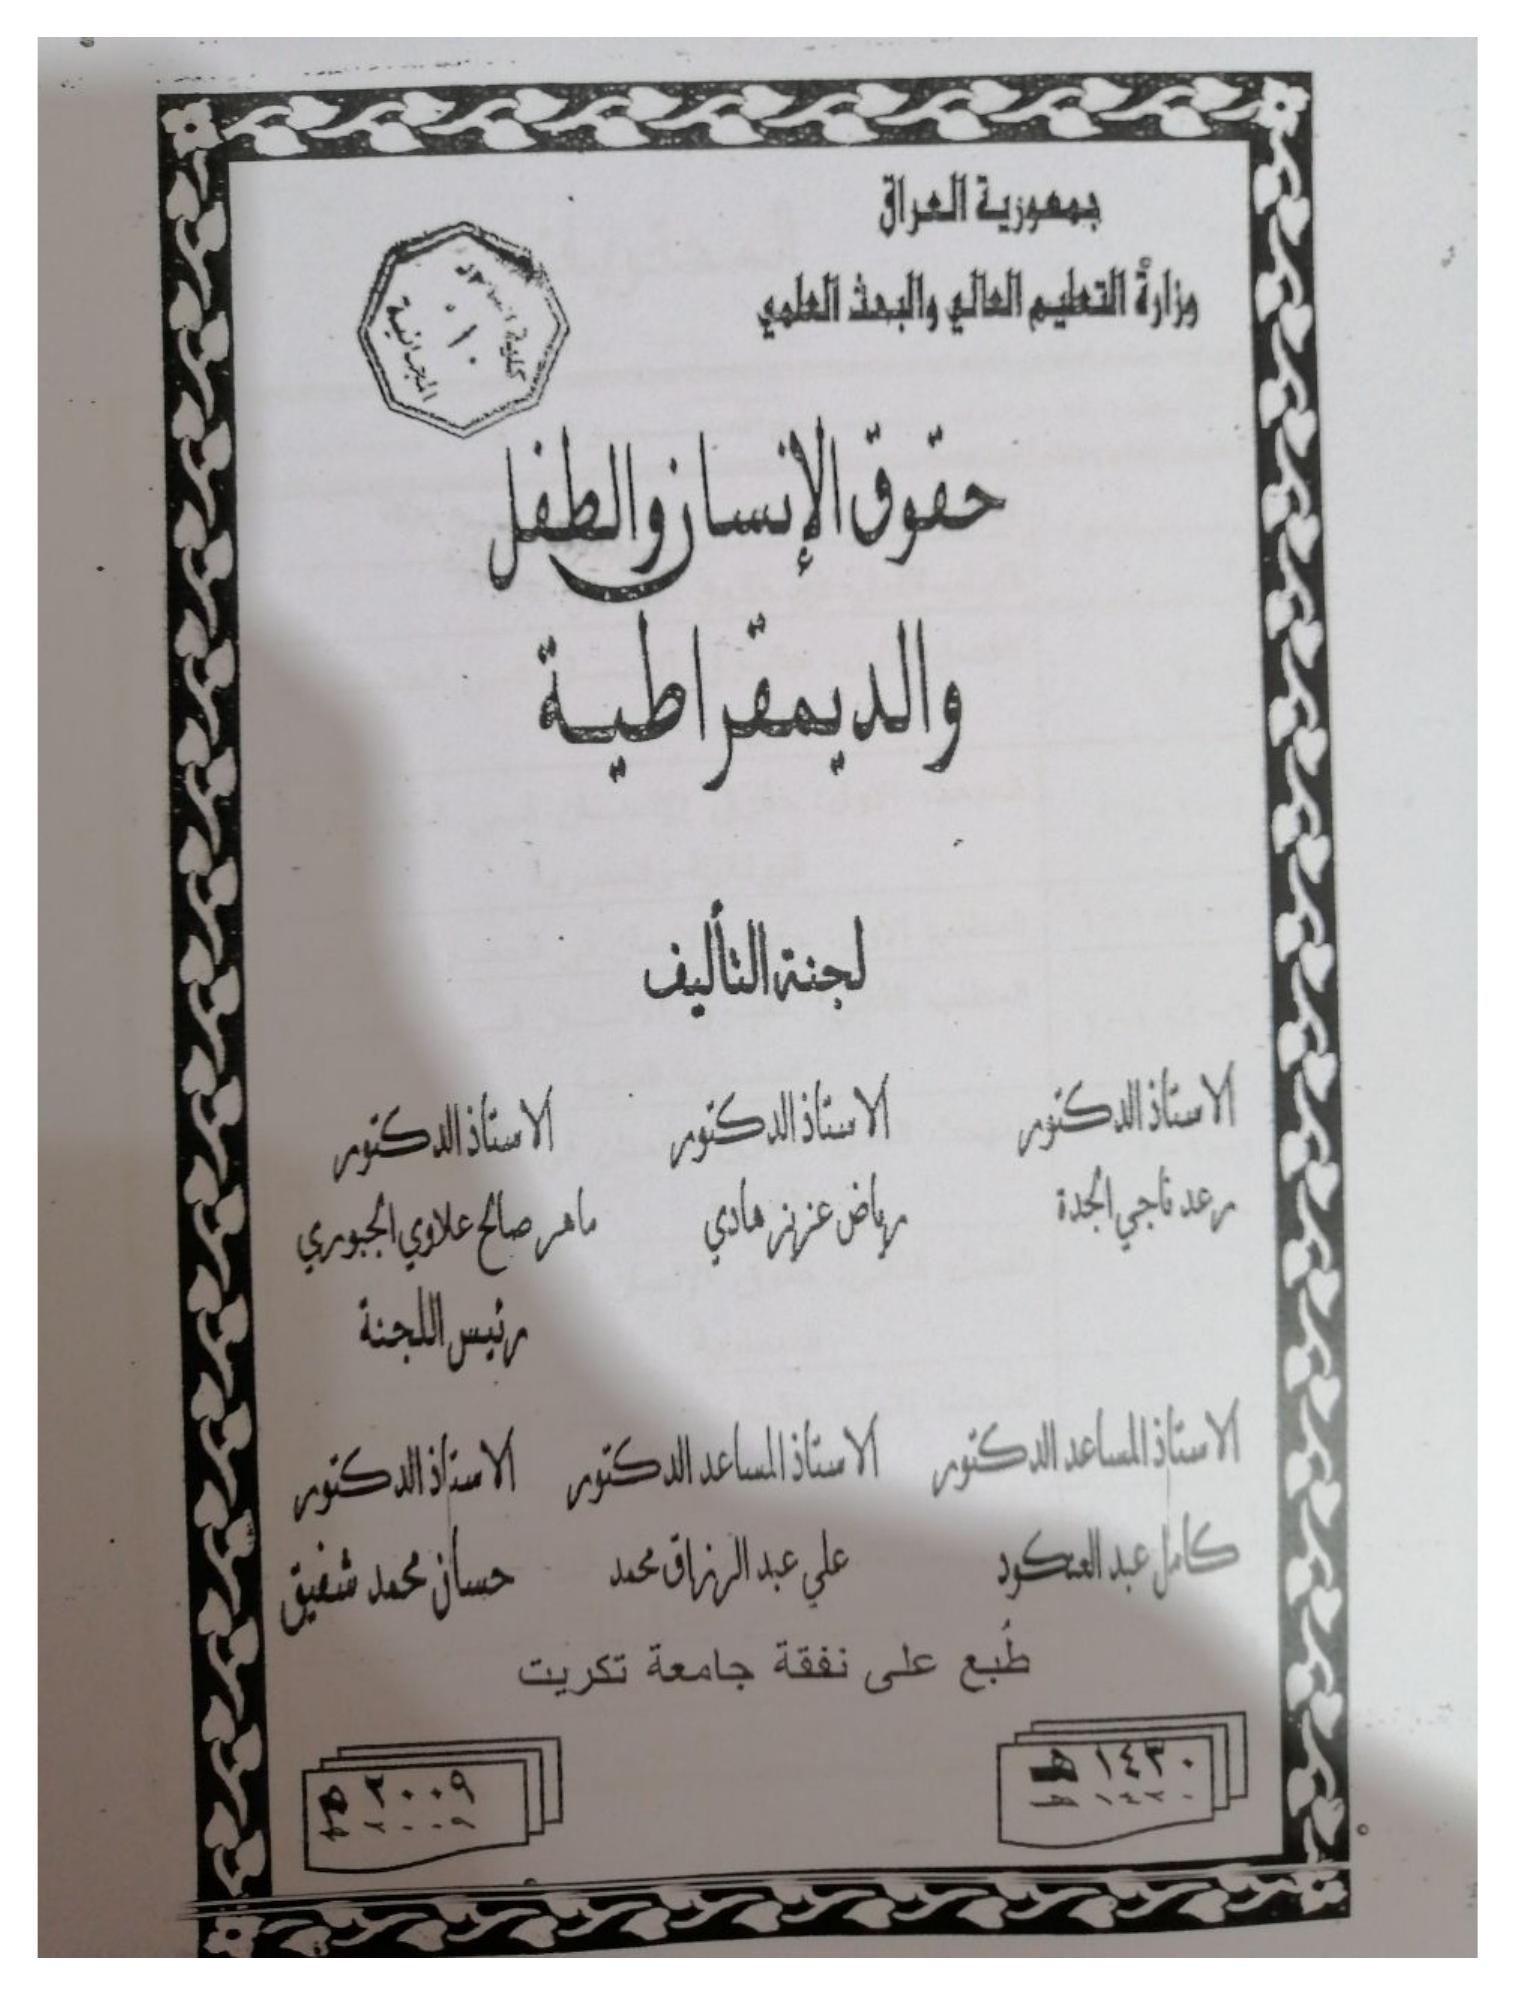 جمهورية العراق
وزارة التعليم العالي والبحث العلمي
كلية
المجانية
حقوق الإنسان والطفل
والديمقراطية
لجنة التأليف
الاستاذ الدكتور الاستاذ الدكتور الاستاذ الدكتور
رعد ناجي الجدة رياض عزيز هادي ماهر صالح علاوي الجبوري
رئيس اللجنة
الاستاذ المساعد الدكتور الاستاذ المساعد الدكتور الاستاذ الدكتور
كامل عبد العنكود علي عبد الرزاق محمد حسان محمد شفيق
طُبع على نفقة جامعة تكريت
١٤٣٠ هـ ٢٠٠٩ م